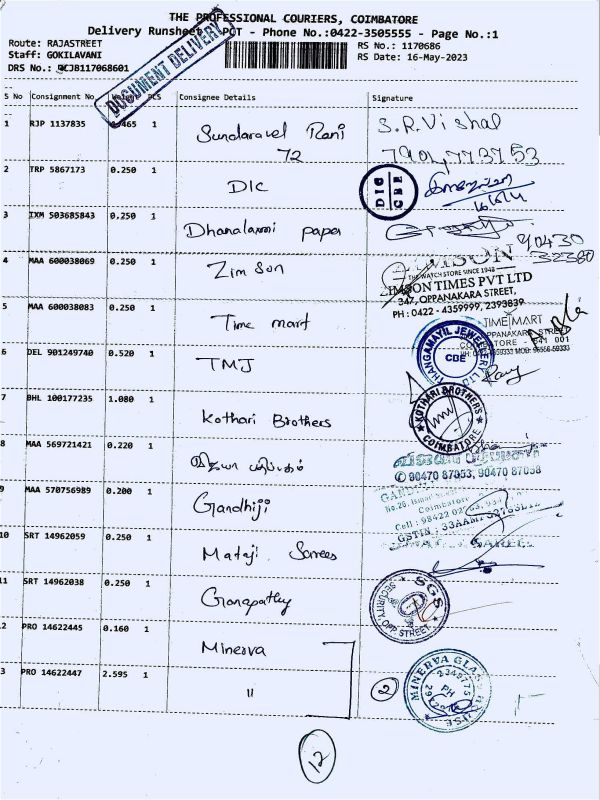 THE PROFESSIONAL COURIERS, COIMBATORE
Delivery Runsheet - Phone No.:0422-3505555 - Page No.:1
DOCUMENT DELIVERY
Route: RAJASTREET
RS No.: 1170686
Staff: GOKILAVANI
RS Date: 16-May-2023
DRS No.:
S No Consignment No. PCS Consignee Details Signature
1 RJP 1137835 1 Sundaravel Rani S.R.Vishal
72
2 TRP 5867173 0.250 1 DIC DIC CBE
3 IXM 503685843 0.250 1 Dhanalaxmi paper
90430
32380
4 MAA 600038069 0.250 1 Zim Son
THE WATCH STORE SINCE 1948
ZIMSON TIMES PVT LTD
347, OPPANAKARA STREET,
PH : 0422 - 4359999, 2393839
5 MAA 600038083 0.250 1 Time mart TIME MART
OPPANAKARA STREET
6 DEL 901249740 0.520 1 TMJ THANGAMAYIL JEWELLERY LTD CBE
7 BHL 100177235 1.080 1 Kothari Brothers KOTHARI BROTHERS COIMBATORE
8 MAA 569721421 0.220 1 விஜயா பதிப்பகம்
90470 87053, 90470 87058
9 MAA 570756989 0.200 1 Gandhiji
Coimbatore
10 SRT 14962059 0.250 1 Mataji Sarees
11 SRT 14962038 0.250 1 Ganapathy SGS SECURITY OPP. STREET
2 PRO 14622445 0.160 1 Minerva
3 PRO 14622447 2.595 1 " 2 MINERVA GLASS HOUSE PH
12